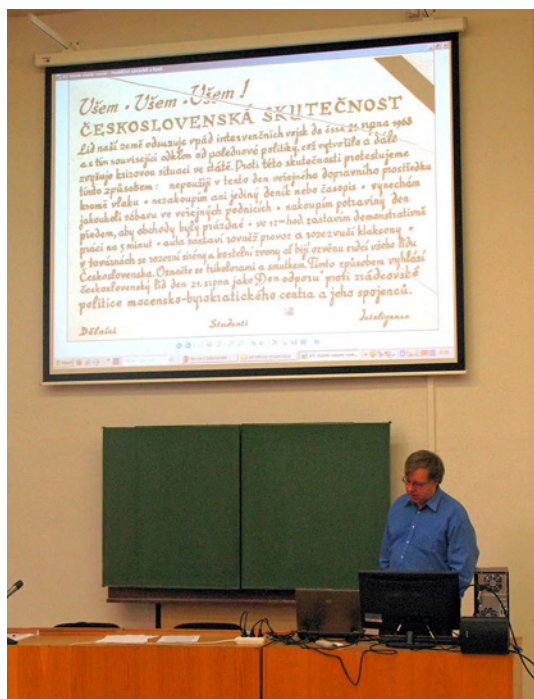 Všem • Všem • Všem !
ČESKOSLOVENSKÁ SKUTEČNOST
Lid naší země odsuzuje vpád intervenčních vojsk do čssr 21. srpna 1968
a s tím související odklon od polednové politiky, což vytvořilo a dále
zvyšuje krizovou situaci ve státě. Proti této skutečnosti protestujeme
tímto způsobem : nepoužiji v tento den veřejného dopravního prostředku
kromě vlaku • nezakoupím ani jediný deník nebo časopis • vynechám
jakoukoli zábavu ve veřejných podnicích • nakoupím potraviny den
předem, aby obchody byly prázdné • ve 12-hod. zastavím demonstrativně
práci na 5 minut • auta zastaví rovněž provoz a rozezvučí klaksony •
v továrnách se rozezní sirény a kostelní zvony ať bijí ozvěnu srdcí všeho lidu
Československa. Označte se trikolorami a smutkem. Tímto způsobem vyhlásí
Československý lid den 21. srpna jako „Den odporu" proti
politice mocensko-byrokratického centra a jeho spojenců.
Dělníci Studenti Inteligence